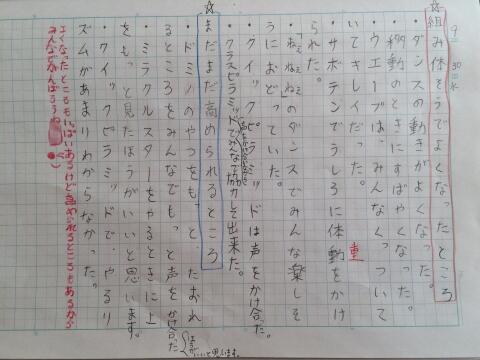 9/30 水
☆組み体そうでよくなったところ
・ダンスの動きがよくなった。
・移動のときにすばやくなった。
・ウエーブは、みんなくっついて
いてキレイだった。
・サボテンでうしろに体動をかけ
重
られた。
・「ねぇねぇねぇ」のダンスでみんな楽しそ
うにおどっていた。
・クイックピラミッドは声をかけ合った。
クラスピラミッドでみんなで協力して出来た。
☆まだまだ高められるところ
・ドミノのやつをもっと、たおれ
るところをみんなでもっと声をかけ合った
ほうがいいと思います。
・ミラクルスターをやるときに上
をもっと見たほうがいいと思います。
・クイックピラミッドで、やるリ
ズムがあまりわからなかった。
よくなったところもいっぱいあるけど高められるところもあるから
みんなでがんばろうね